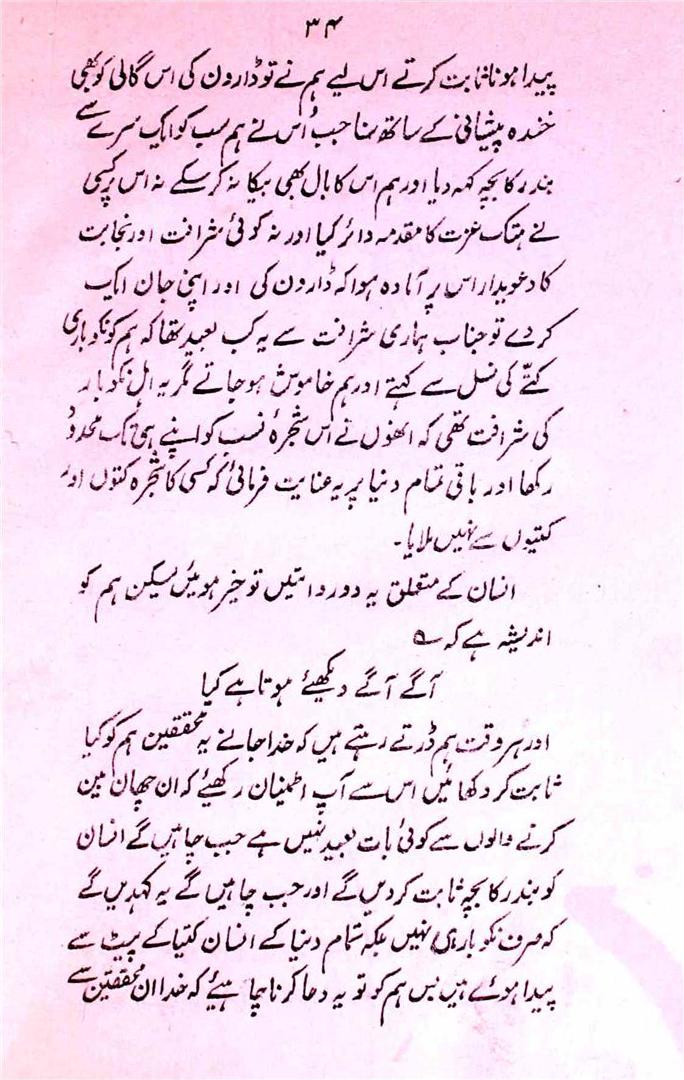 ۳۴
پیدا ہونا ثابت کرتے اس لیے ہم نے تو ڈارون کی اس گالی کو بھی
خندہ پیشانی کے ساتھ سنا جب اُس نے ہم سب کو ایک سرے سے
بندر کا بچہ کہہ دیا اور ہم اس کا بال بھی بیکا نہ کر سکے نہ اس پر کسی
نے ہتک عزت کا مقدمہ دائر کیا اور نہ کوئی شرافت اور نجابت
کا دعویدار اس پر آمادہ ہوا کہ ڈارون کی اور اپنی جان ایک
کر دے تو جناب ہماری شرافت سے یہ کب بعید تھا کہ ہم کو نکوباری
کتّے کی نسل سے کہتے اور ہم خاموش ہو جاتے مگر یہ اہل نکوبار
کی شرافت تھی کہ انھوں نے اس شجرۂ نسب کو اپنے ہی تک محدود
رکھا اور باقی تمام دنیا پر یہ عنایت فرمائی کہ کسی کا شجرہ کتوں اور
کتیوں سے نہیں ملایا۔
انسان کے متعلق یہ دو روائتیں تو خیر ہوئیں لیکن ہم کو
اندیشہ ہے کہ ؎
آگے آگے دیکھئے ہوتا ہے کیا
اور ہر وقت ہم ڈرتے رہتے ہیں کہ خدا جانے یہ محققین ہم کو کیا
ثابت کر دکھائیں اس سے آپ اطمنیان رکھیئے کہ ان چھان بین
کرنے والوں سے کوئی بات بعید نہیں ہے جب چاہیں گے انسان
کو بندر کا بچہ ثابت کر دیں گے اور جب چاہیں گے یہ کہدیں گے
کہ صرف نکوبار ہی نہیں بلکہ تمام دنیا کے انسان کتیا کے پیٹ سے
پیدا ہوئے ہیں بس ہم کو تو یہ دعا کرنا چاہیئے کہ خدا ان محققین سے